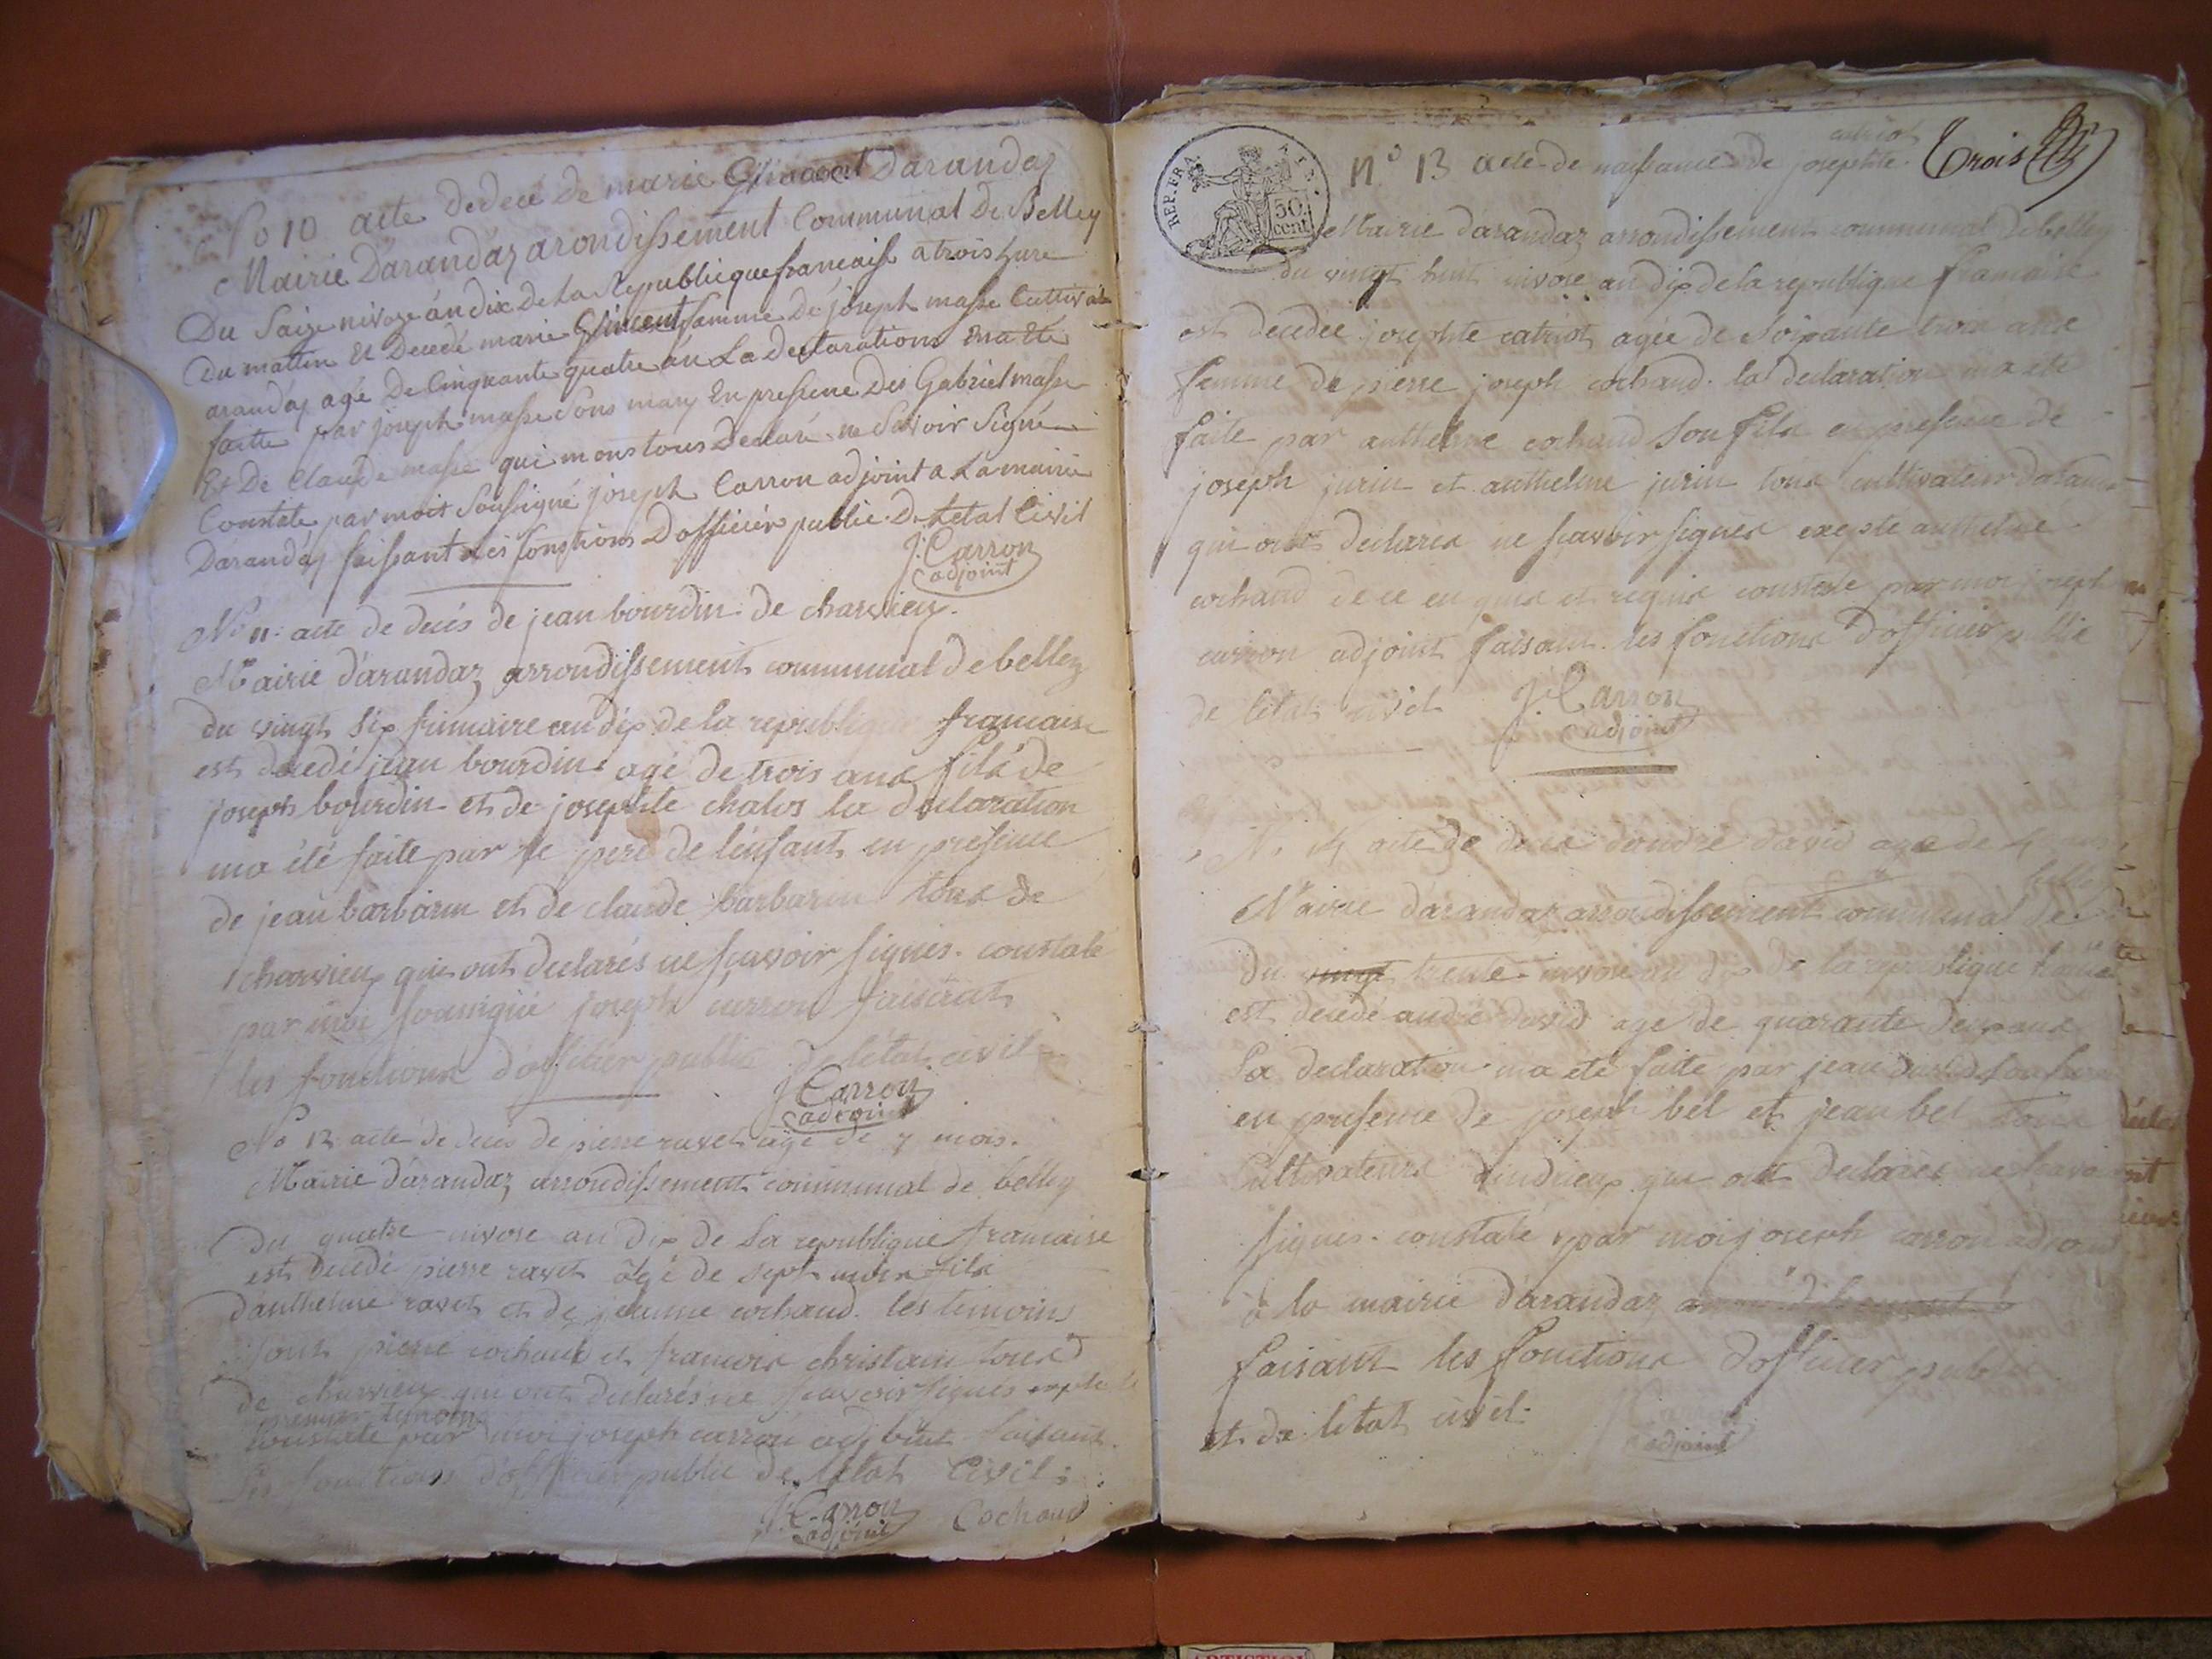 No 10 acte de deceé de marie Glinacont Darandaz
Mairie Darandaz arondissement Communal De Belley
Du Saize nivoze ándix De La Republicque francaise a trois hure
Du mattin Et Decedé marie Glincent famme De joseph masse Cultivat
arandáz agé De Cinquante quatre án La declarations ma Eté
faitte par joseph masse Sons mary En presence Des Gabriel masse
Et De Claude masse qui mons tous Declaré ne Savoir Signé
Constaté par moit Soussigné joseph Carron adjoint a La mairie
Darandáz faissant les fonstions Dofficier public De Letat Civil
J. Carron
adjoint
No 11 acte de decés de jean bourdin de charvieux.
Mairie dárandaz arrondissement communal de belley
du vingt six frimaire an dix de la republique francaise
est decedé jean bourdin agé de trois ans fils de
joseph bourdin et de josephte chalos la declaration
ma été faite par le pere de lénfant en presence
de jean barbarin et de claude barbarin tous de
charvieux qui ont declarés ne scavoir signés. constaté
par moi soussigné joseph carron faisant
les fonctions dofficier public de létat civil
J. Carron
adjoint
No 12 acte de decés de pierre ravet agé de 7 mois.
Mairie dárandaz arrondissement communal de belley
du quatre nivose an dix de la republique francaise
est decedé pierre ravet agé de sept mois fils
danthelme ravet et de jeanne cochand. les temoins
sont pierre cochand et francois christain tous
de charvieux qui ont declarés ne scavoir signés
premier temoin
constaté par moi joseph carron adjoint faisant
les fonctions dofficier public de letat Civil:
J. Carron Cochand
adjoint
REP. FRA
50 cent
catriot
No 13 acte de naissance de josephte. Trois
Mairie dárandaz arrondissement communal de belley
du vingt huit nivose an dix de la republique francaise
est decedée josephte catriot agée de soixante trois ans
femme de pierre joseph cochand. la declaration ma eté
faite par anthelme cochand son fils en presence de
joseph jurin et anthelme jurin tous cultivateurs daran
qui ont declarés ne scavoir signés excepté anthelme
cochand de ce en quis et requis constaté par moi joseph
carron adjoint faisant les fonctions dofficier public
de létat civil J. Carron
adjoint
N. 14 acte de decés dandré david age de
belley
Mairie dárandaz arrondissement communal de
du vingt trente nivose an dix de la republique
est decedé andré david agé de quarante deux ans
La declaration ma eté faite par jean david son
en presence de joseph bel et jean bel tous
Cultivateurs dindrieux qui ont declarés ne scavoir
signés. constaté par moi joseph carron adjoint
à la mairie darandaz
faisant les fonctions dofficier public
et de letat civil.
J. Carron
adjoint